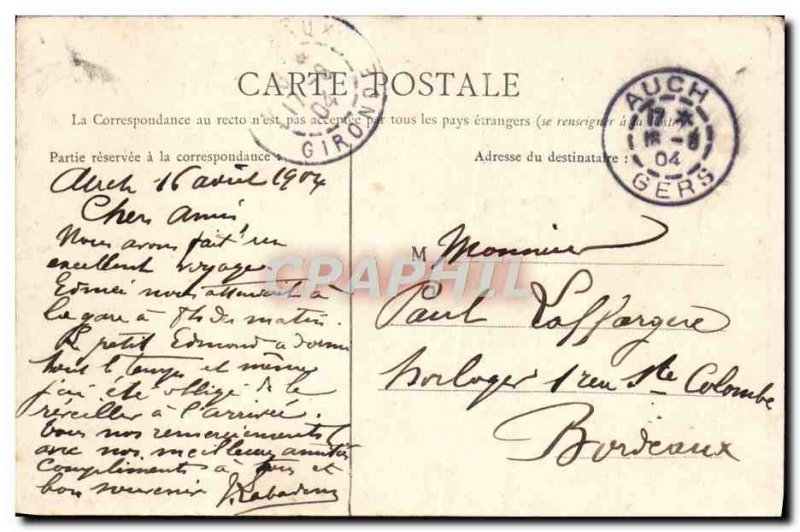 CARTE POSTALE
La Correspondance au recto n'est pas acceptée par tous les pays étrangers (se renseigner à la Poste)
Partie réservée à la correspondance :
Auch 16 août 1904
Chers Amis
Nous avons fait un
excellent voyage
Edmée nous attendait à
la gare à du matin.
Le petit Edmond a dormi
tout le temps et même
j'ai été obligé de le
réveiller à l'arrivée.
Tous nos remerciements
avec nos meilleurs amitiés
compliments à tous et
bon souvenir
Adresse du destinataire :
M Monnier
Paul Laffargue
horloger 1 rue Ste Colombe
Bordeaux
GIRONDE
04
AUCH
04
GERS
CPRAPHIL